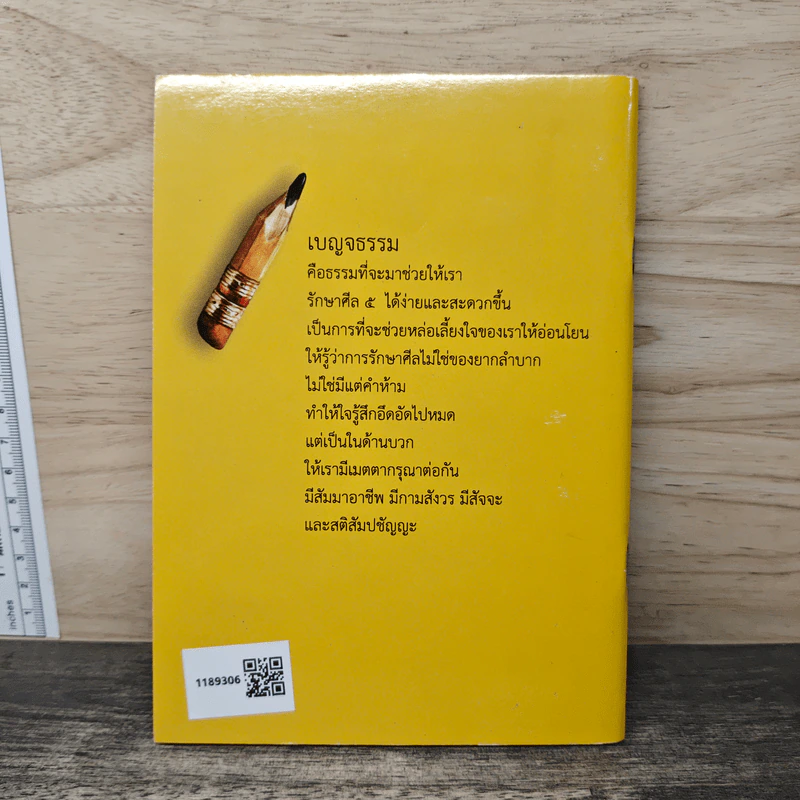 เบญจธรรม
คือธรรมที่จะมาช่วยให้เรา
รักษาศีล ๕ ได้ง่ายและสะดวกขึ้น
เป็นการที่จะช่วยหล่อเลี้ยงใจของเราให้อ่อนโยน
ให้รู้ว่าการรักษาศีลไม่ใช่ของยากลำบาก
ไม่ใช่มีแต่คำห้าม
ทำให้ใจรู้สึกอึดอัดไปหมด
แต่เป็นในด้านบวก
ให้เรามีเมตตากรุณาต่อกัน
มีสัมมาอาชีพ มีกามสังวร มีสัจจะ
และสติสัมปชัญญะ
1189306
inches 1 2 3 4 5 6 7 8